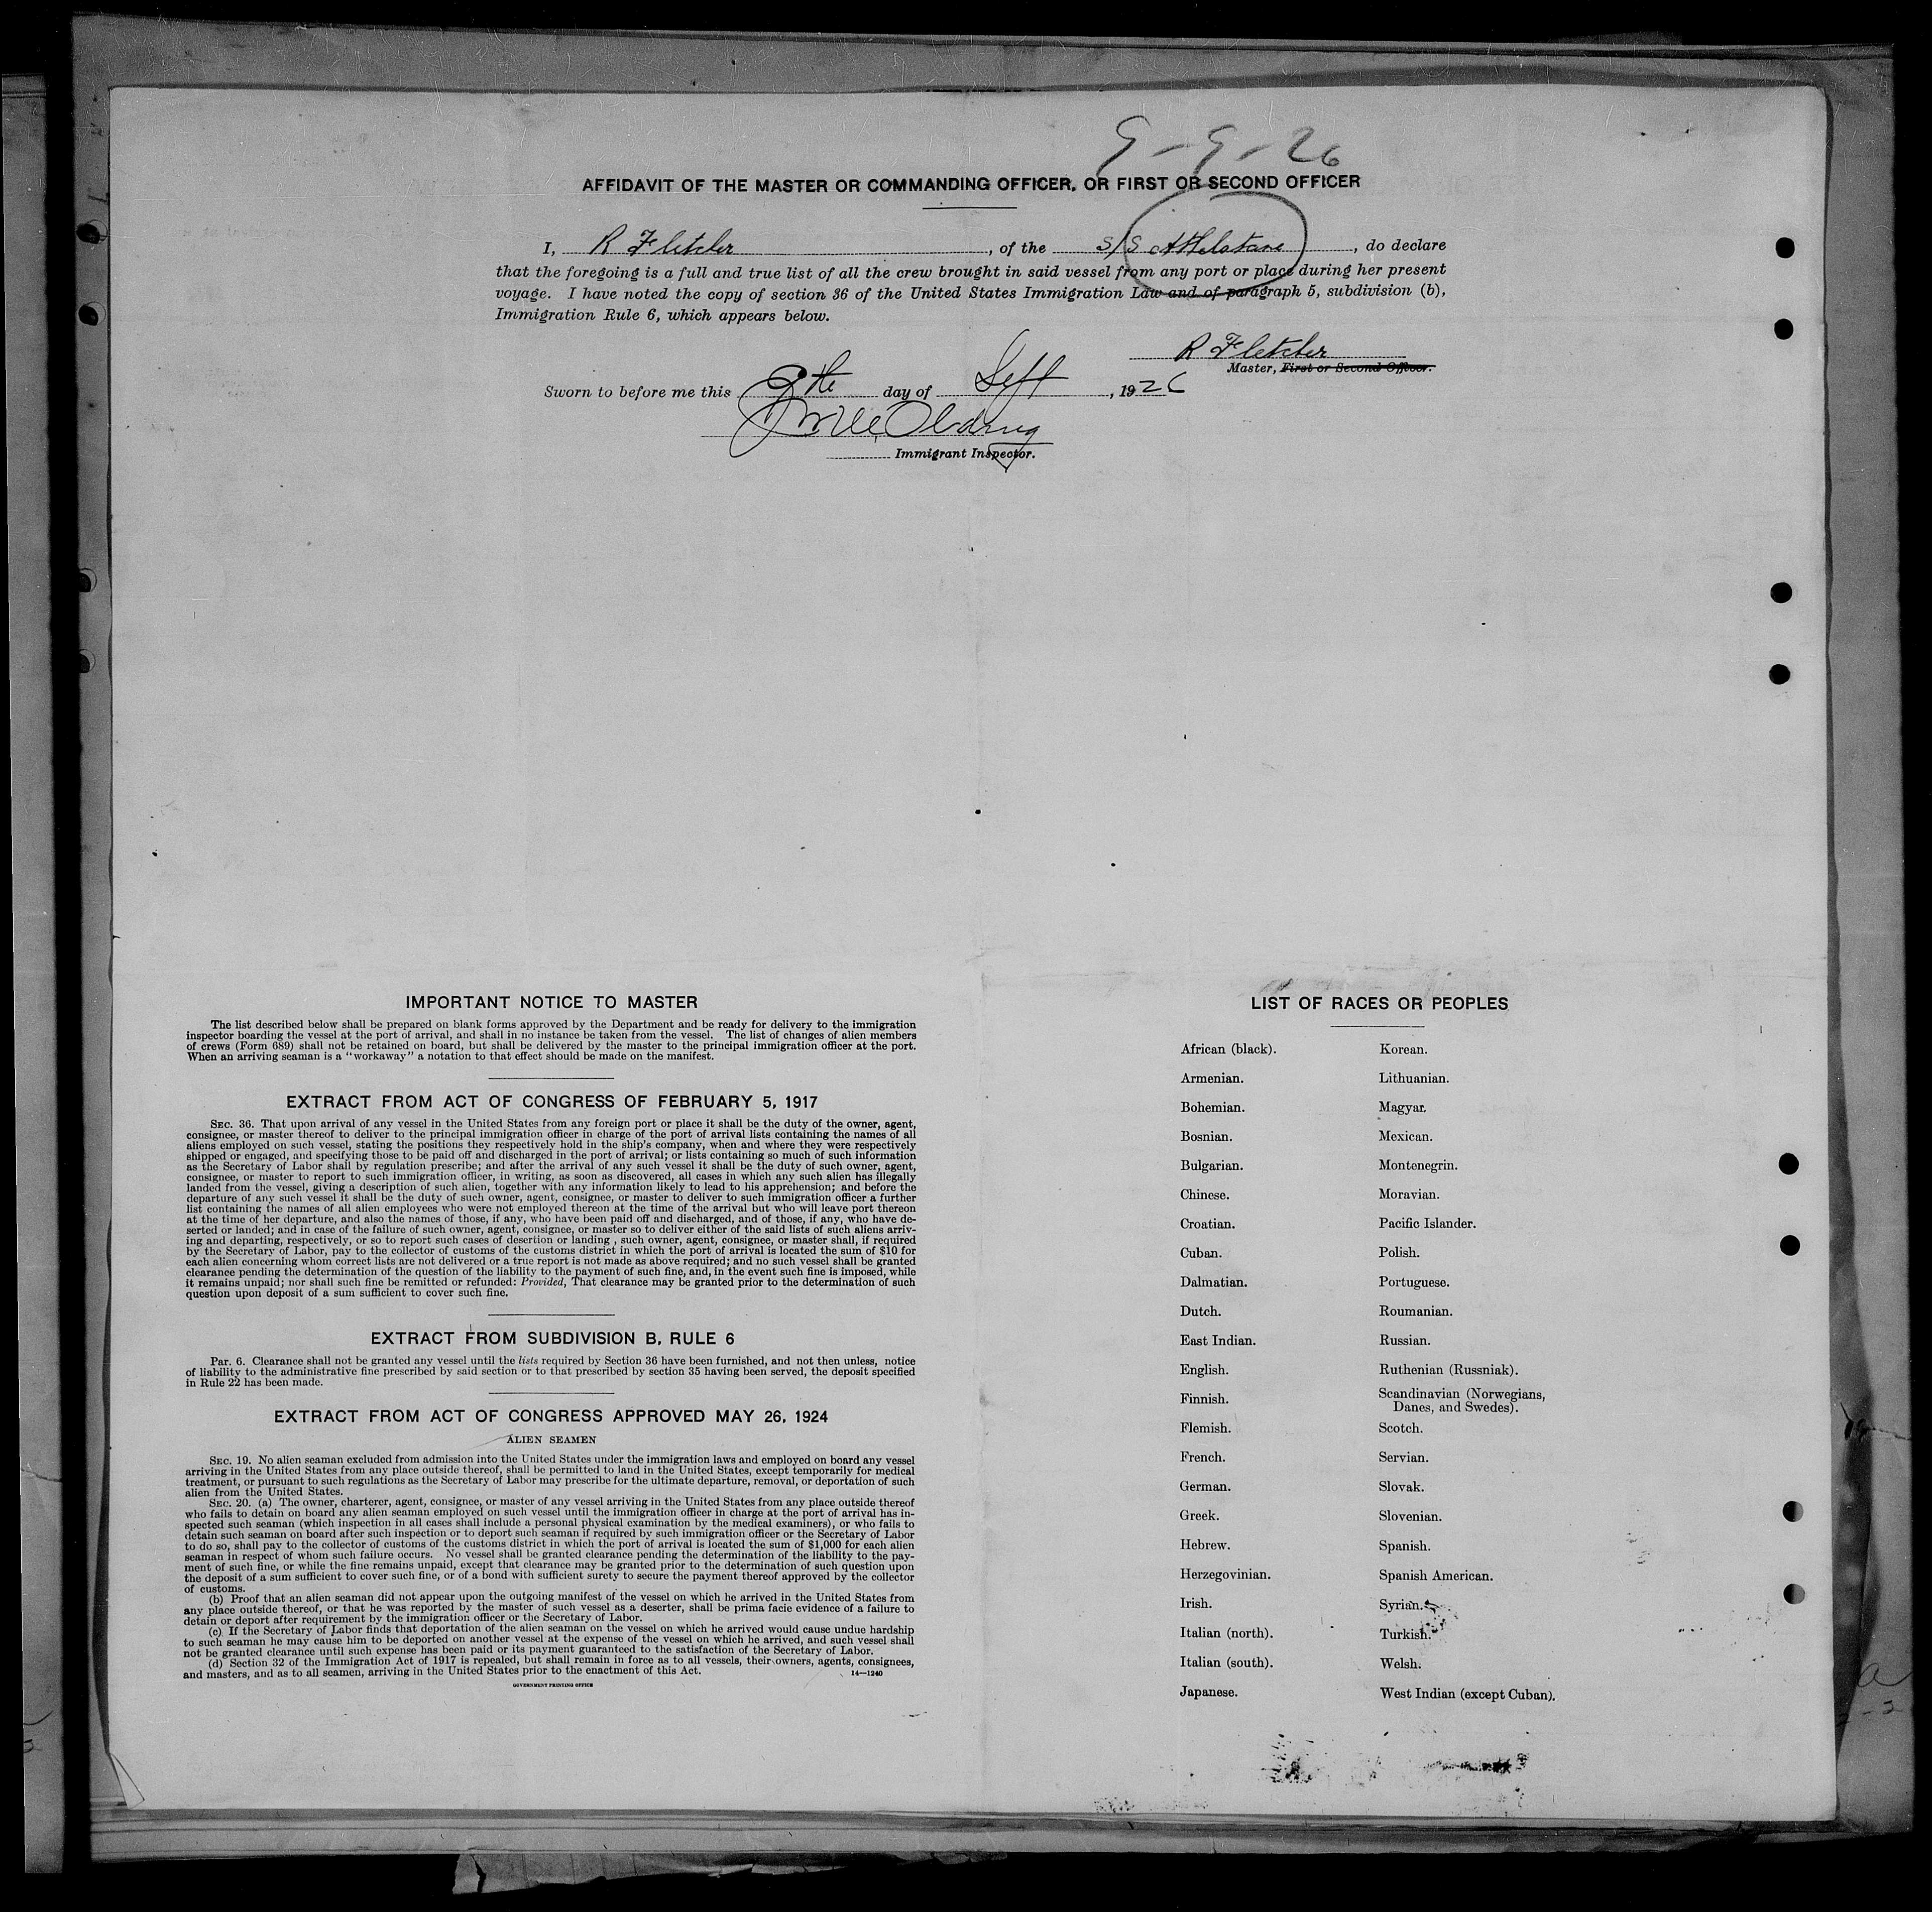 9-9-26
AFFIDAVIT OF THE MASTER OR COMMANDING OFFICER, OR FIRST OR SECOND OFFICER
I, R Fletcher, of the S/S Athelstane, do declare
that the foregoing is a full and true list of all the crew brought in said vessel from any port or place during her present
voyage. I have noted the copy of section 36 of the United States Immigration Law and of paragraph 5, subdivision (b),
Immigration Rule 6, which appears below.
R Fletcher
Master, First or Second Officer.
Sworn to before me this 9th day of Sept, 1926
Immigrant Inspector.
IMPORTANT NOTICE TO MASTER
The list described below shall be prepared on blank forms approved by the Department and be ready for delivery to the immigration
inspector boarding the vessel at the port of arrival, and shall in no instance be taken from the vessel. The list of changes of alien members
of crews (Form 689) shall not be retained on board, but shall be delivered by the master to the principal immigration officer at the port.
When an arriving seaman is a "workaway" a notation to that effect should be made on the manifest.
EXTRACT FROM ACT OF CONGRESS OF FEBRUARY 5, 1917
SEC. 36. That upon arrival of any vessel in the United States from any foreign port or place it shall be the duty of the owner, agent,
consignee, or master thereof to deliver to the principal immigration officer in charge of the port of arrival lists containing the names of all
aliens employed on such vessel, stating the positions they respectively hold in the ship's company, when and where they were respectively
shipped or engaged, and specifying those to be paid off and discharged in the port of arrival; or lists containing so much of such information
as the Secretary of Labor shall by regulation prescribe; and after the arrival of any such vessel it shall be the duty of such owner, agent,
consignee, or master to report to such immigration officer, in writing, as soon as discovered, all cases in which any such alien has illegally
landed from the vessel, giving a description of such alien, together with any information likely to lead to his apprehension; and before the
departure of any such vessel it shall be the duty of such owner, agent, consignee, or master to deliver to such immigration officer a further
list containing the names of all alien employees who were not employed thereon at the time of the arrival but who will leave port thereon
at the time of her departure, and also the names of those, if any, who have been paid off and discharged, and of those, if any, who have de-
serted or landed; and in case of the failure of such owner, agent, consignee, or master so to deliver either of the said lists of such aliens arriv-
ing and departing, respectively, or so to report such cases of desertion or landing , such owner, agent, consignee, or master shall, if required
by the Secretary of Labor, pay to the collector of customs of the customs district in which the port of arrival is located the sum of $10 for
each alien concerning whom correct lists are not delivered or a true report is not made as above required; and no such vessel shall be granted
clearance pending the determination of the question of the liability to the payment of such fine, and, in the event such fine is imposed, while
it remains unpaid; nor shall such fine be remitted or refunded: Provided, That clearance may be granted prior to the determination of such
question upon deposit of a sum sufficient to cover such fine.
EXTRACT FROM SUBDIVISION B, RULE 6
Par. 6. Clearance shall not be granted any vessel until the lists required by Section 36 have been furnished, and not then unless, notice
of liability to the administrative fine prescribed by said section or to that prescribed by section 35 having been served, the deposit specified
in Rule 22 has been made.
EXTRACT FROM ACT OF CONGRESS APPROVED MAY 26, 1924
ALIEN SEAMEN
SEC. 19. No alien seaman excluded from admission into the United States under the immigration laws and employed on board any vessel
arriving in the United States from any place outside thereof, shall be permitted to land in the United States, except temporarily for medical
treatment, or pursuant to such regulations as the Secretary of Labor may prescribe for the ultimate departure, removal, or deportation of such
alien from the United States.
SEC. 20. (a) The owner, charterer, agent, consignee, or master of any vessel arriving in the United States from any place outside thereof
who fails to detain on board any alien seaman employed on such vessel until the immigration officer in charge at the port of arrival has in-
spected such seaman (which inspection in all cases shall include a personal physical examination by the medical examiners), or who fails to
detain such seaman on board after such inspection or to deport such seaman if required by such immigration officer or the Secretary of Labor
to do so, shall pay to the collector of customs of the customs district in which the port of arrival is located the sum of $1,000 for each alien
seaman in respect of whom such failure occurs. No vessel shall be granted clearance pending the determination of the liability to the pay-
ment of such fine, or while the fine remains unpaid, except that clearance may be granted prior to the determination of such question upon
the deposit of a sum sufficient to cover such fine, or of a bond with sufficient surety to secure the payment thereof approved by the collector
of customs.
(b) Proof that an alien seaman did not appear upon the outgoing manifest of the vessel on which he arrived in the United States from
any place outside thereof, or that he was reported by the master of such vessel as a deserter, shall be prima facie evidence of a failure to
detain or deport after requirement by the immigration officer or the Secretary of Labor.
(c) If the Secretary of Labor finds that deportation of the alien seaman on the vessel on which he arrived would cause undue hardship
to such seaman he may cause him to be deported on another vessel at the expense of the vessel on which he arrived, and such vessel shall
not be granted clearance until such expense has been paid or its payment guaranteed to the satisfaction of the Secretary of Labor.
(d) Section 32 of the Immigration Act of 1917 is repealed, but shall remain in force as to all vessels, their owners, agents, consignees,
and masters, and as to all seamen, arriving in the United States prior to the enactment of this Act.
14—1240
GOVERNMENT PRINTING OFFICE
LIST OF RACES OR PEOPLES
African (black). Korean.
Armenian. Lithuanian.
Bohemian. Magyar.
Bosnian. Mexican.
Bulgarian. Montenegrin.
Chinese. Moravian.
Croatian. Pacific Islander.
Cuban. Polish.
Dalmatian. Portuguese.
Dutch. Roumanian.
East Indian. Russian.
English. Ruthenian (Russniak).
Finnish. Scandinavian (Norwegians,
Danes, and Swedes).
Flemish. Scotch.
French. Servian.
German. Slovak.
Greek. Slovenian.
Hebrew. Spanish.
Herzegovinian. Spanish American.
Irish. Syrian.
Italian (north). Turkish.
Italian (south). Welsh.
Japanese. West Indian (except Cuban).